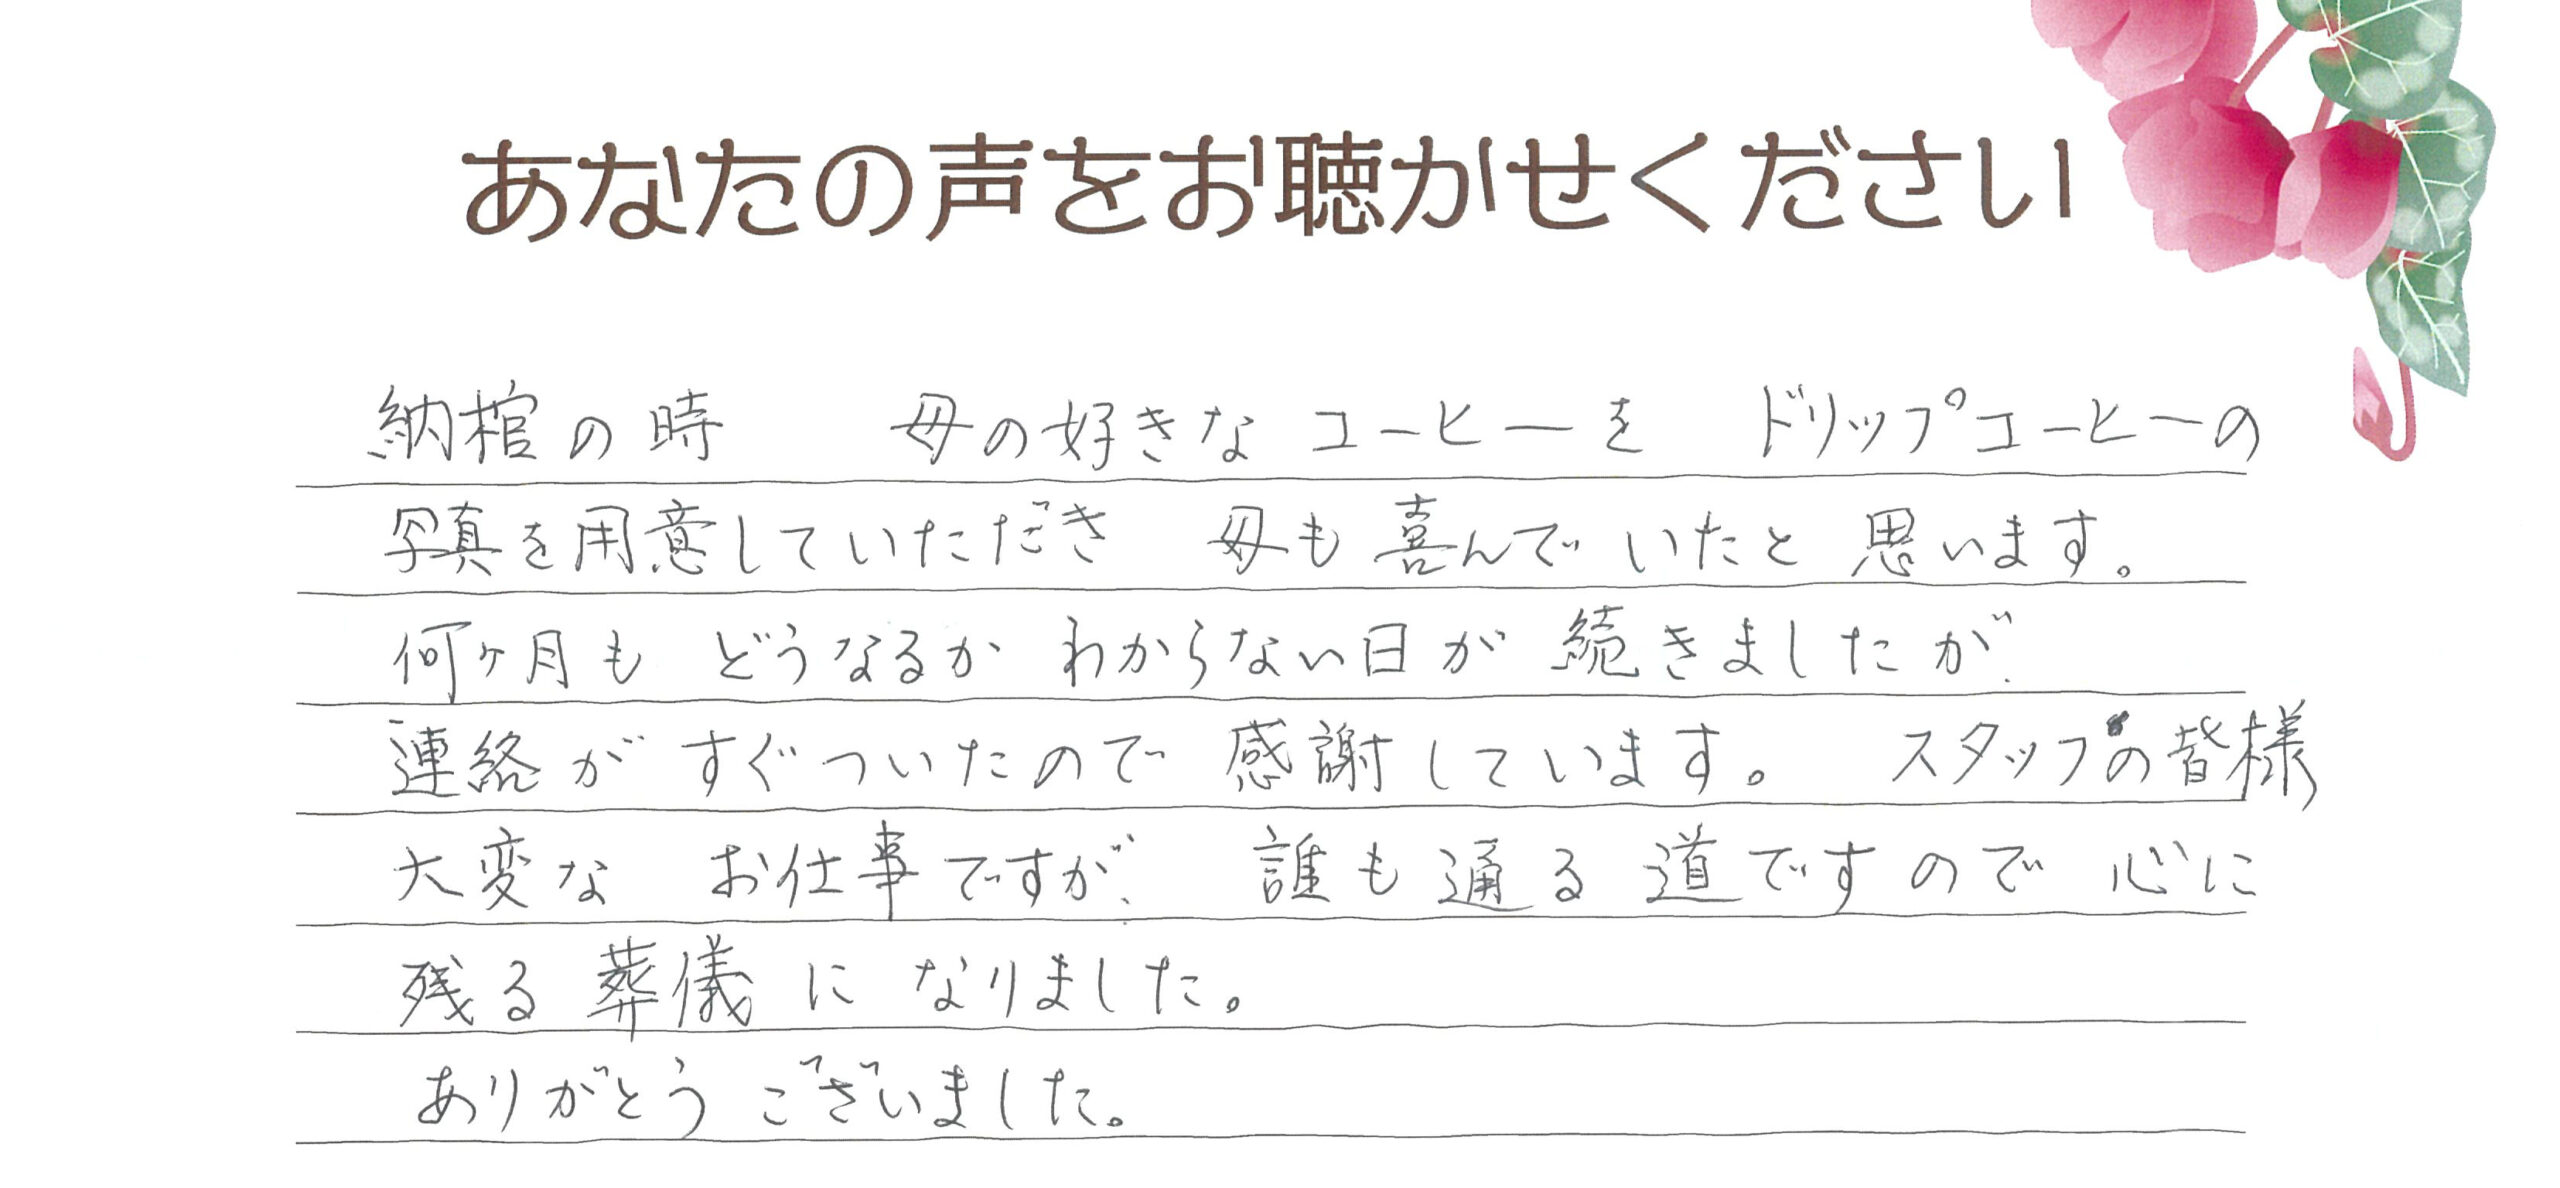 あなたの声をお聴かせください
納棺の時　母の好きなコーヒーを　ドリップコーヒーの
写真を用意していただき　母も喜んでいたと思います。
何ヶ月も　どうなるか　わからない日が　続きましたが、
連絡が　すぐついたので　感謝しています。　スタッフの皆様
大変な　お仕事ですが、　誰も通る道ですので　心に
残る葬儀に　なりました。
ありがとう　ございました。